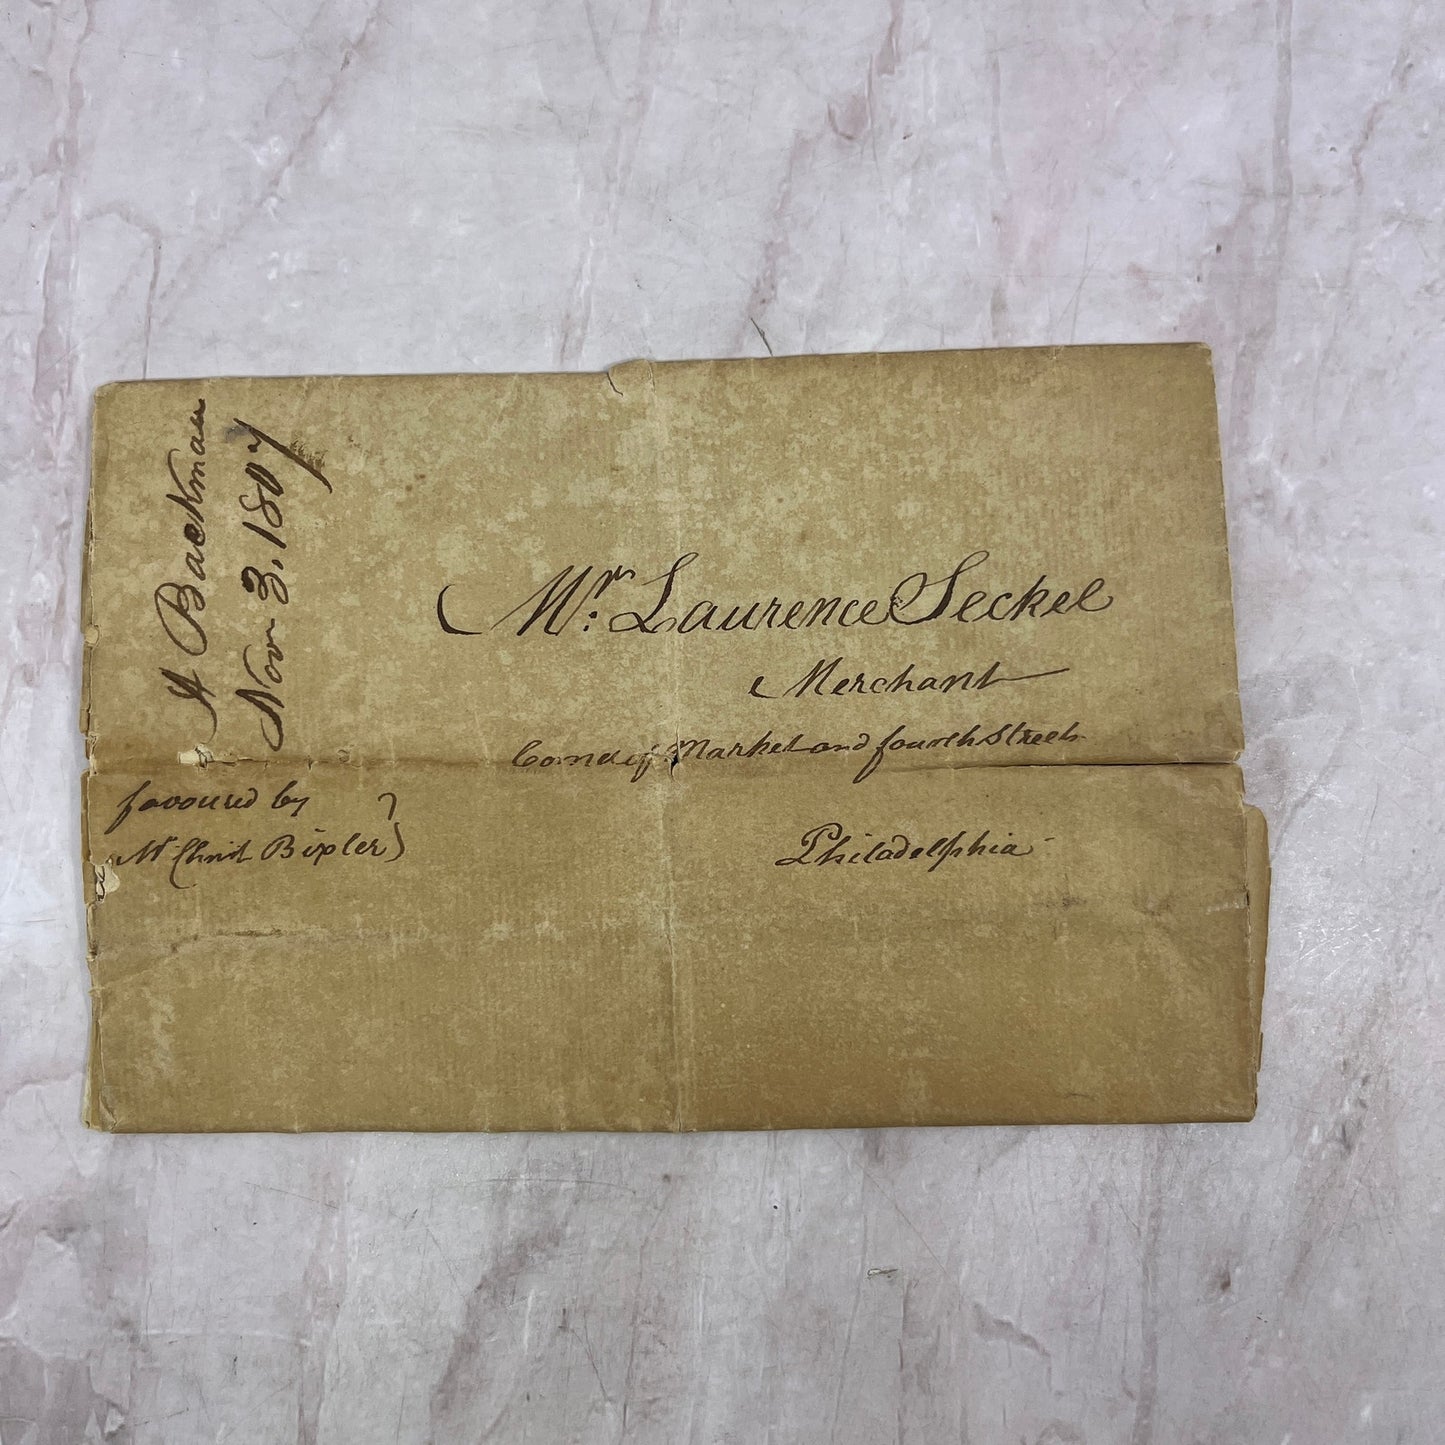 H Backman
Nov 3. 1807
Mr. Laurence Seckel
Merchant
Corner of Market and fourth Streets
Philadelphia
favoured by
Mr Christ Bixler